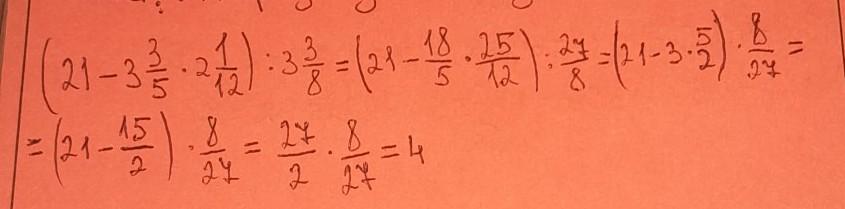 (21 - 3 3/5 · 2 1/12) : 3 3/8 = (21 - 18/5 · 25/12) : 27/8 = (21 - 3 · 5/2) · 8/27 =
= (21 - 15/2) · 8/27 = 27/2 · 8/27 = 4